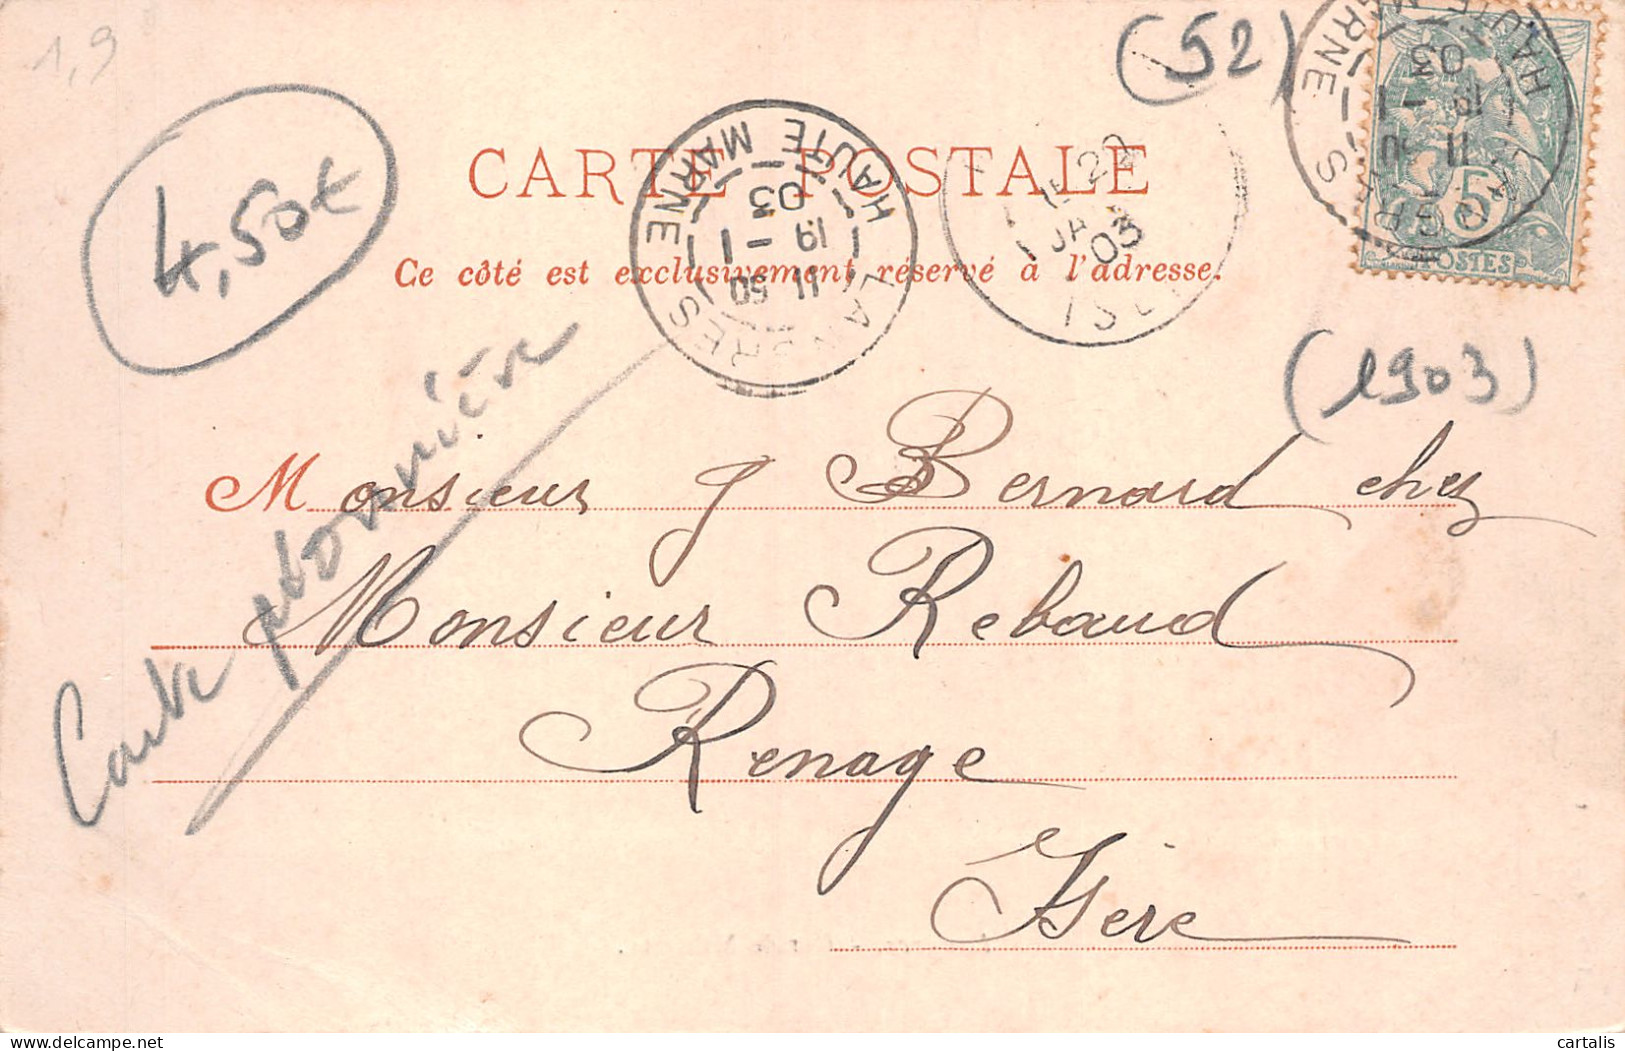 1,9
(52)
4,50€
CARTE POSTALE
Ce côté est exclusivement réservé à l'adresse.
LANGRES HAUTE MARNE
11 50
19 - 1
03
22
JA
03
LANGRES HAUTE MARNE
11 50
19 - 1
03
5
POSTES
(1903)
Carte pionnière
Monsieur J Bernard chez
Monsieur Rebaud
Renage
Isère
cartalis